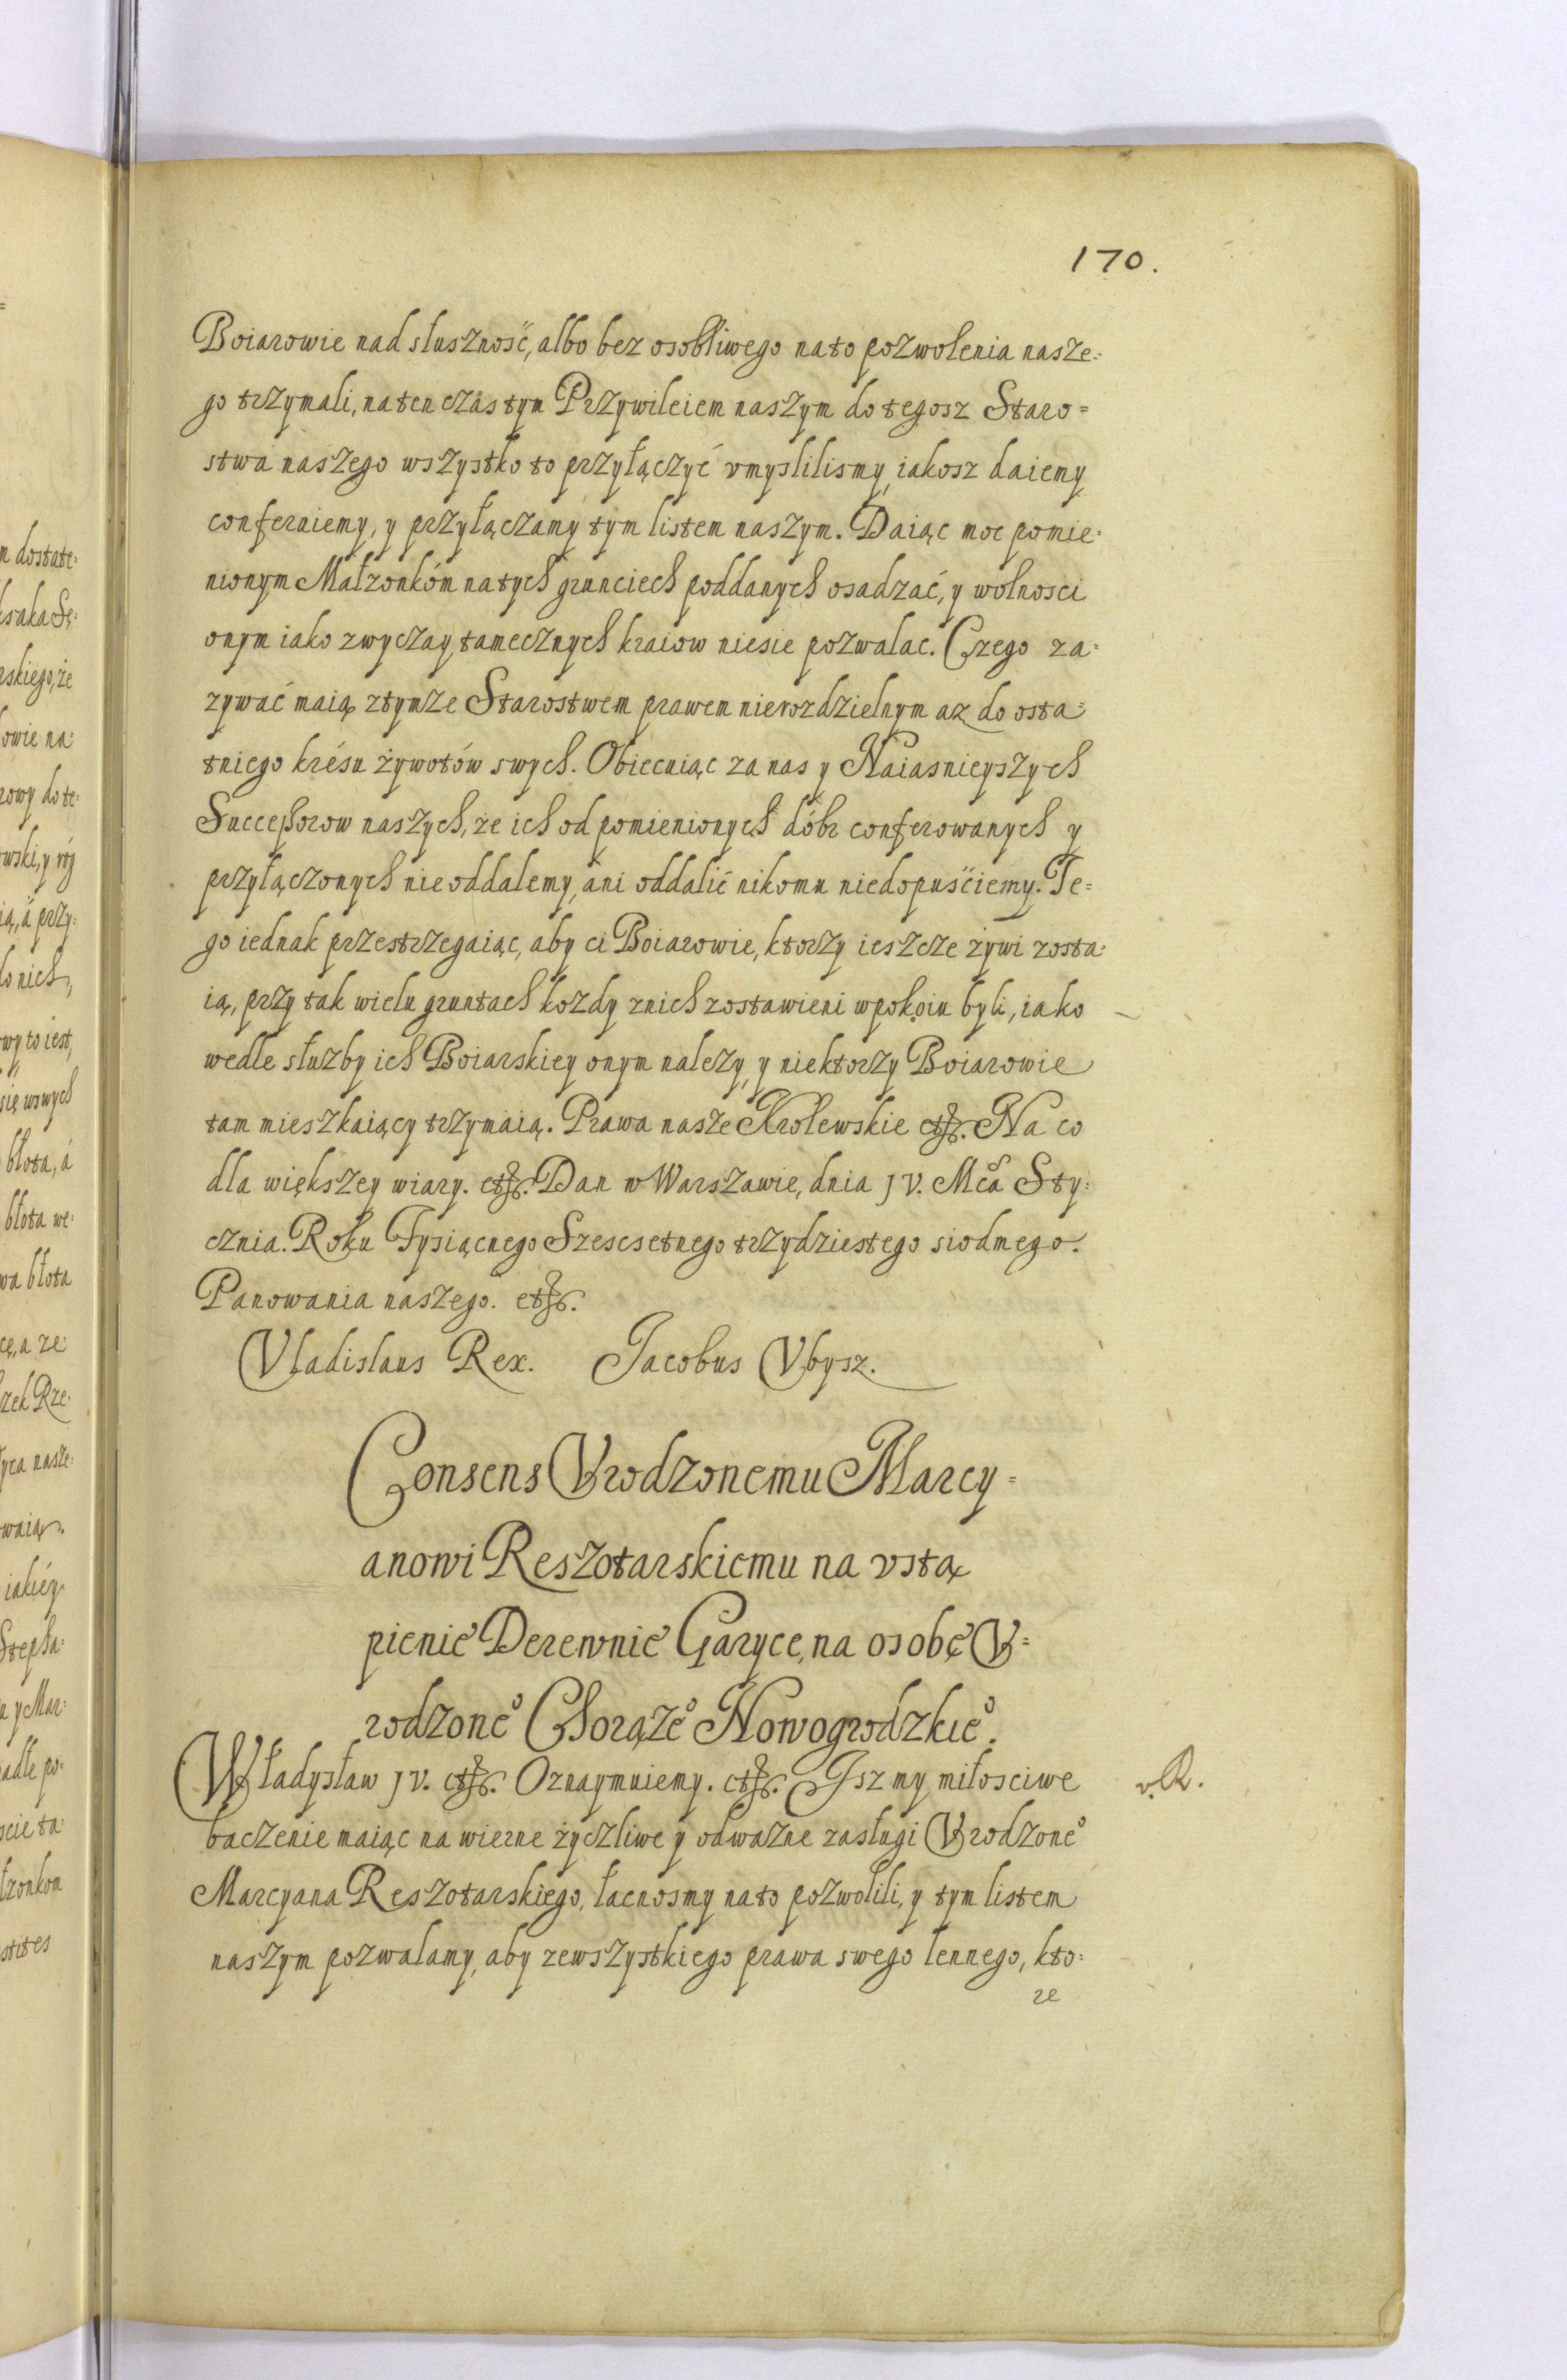 170.
Boiarowie nad słusznosć, albo bez osobliwego na to pozwolenia nasze=
go trzymali, na ten czas tym Przywileiem naszym do tegosz Staro=
stwa naszego wszystko to przyłączyć vmyslilismy, iakosz daiemy
conferuiemy, y przyłączamy tym listem naszym. Daiąc moc pomie=
nionym Małzonkóm na tych grunciech poddanych osadzać, y wolnosci
onym iako zwyczay tamecznych kraiow niesie pozwalac. Czego za=
zywać maią z tymze Starostwem prawem nierozdzielnym az do osta=
tniego krésu żywotów swych. Obiecuiąc za nas y Naiasnieyszych
Successorow naszych, że ich od pomienionych dóbr conferowanych y
przyłączonych nie oddalemy, ani oddalić nikomu niedopusciemy. Te=
go iednak przestrzegaiąc, aby ci Boiarowie, ktorzy ieszcze żywi zosta=
ią, przy tak wielu gruntach kozdy z nich zostawieni w pokoiu byli, iako
wedle słuzby ich Boiarskiey onym nalezy, y niektorzy Boiarowie
tam mieszkaiący trzymaią. Prawa nasze Krolewskie etc. Na co
dla większey wiary. etc. Dan w Warszawie, dnia JV. Mca Sty=
cznia. Roku Tysiącnego Szescsetnego trzydziestego siodmego.
Panowania naszego. etc.
Vladislaus Rex. Jacobus Vbysz.
Consens Vrodzonemu Marcy=
anowi Reszotarskiemu na vstą
pienie Derewnie Garyce, na osobę V=
rodzone° Chorąże° Nowogrodzkie°.
Władysław JV. etc. Oznaymuiemy. etc. Jsz my miłosciwe
v. R.
baczenie maiąc na wierne życzliwe y odważne zasługi Vrodzone°
Marcyana Reszotarskiego, łacnosmy na to pozwolili, y tym listem
naszym pozwalamy, aby ze wszystkiego prawa swego lennego, kto=
re